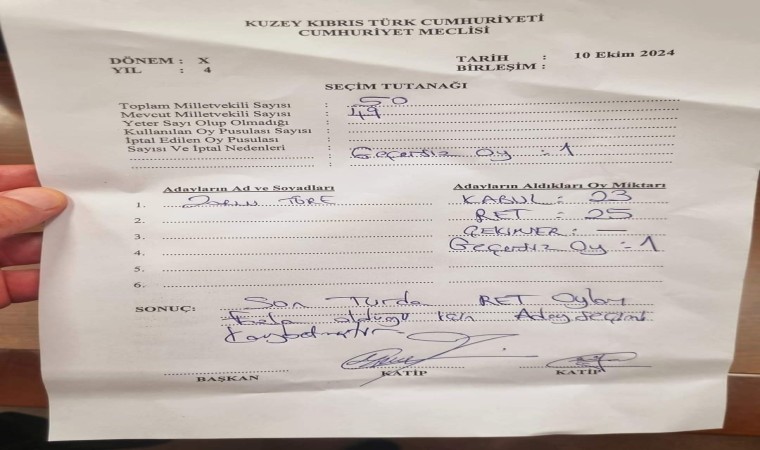 KUZEY KIBRIS TÜRK CUMHURİYETİ
CUMHURİYET MECLİSİ
DÖNEM : X
YIL : 4
TARİH : 10 Ekim 2024
BİRLEŞİM :
SEÇİM TUTANAĞI
Toplam Milletvekili Sayısı : 50
Mevcut Milletvekili Sayısı : 49
Yeter Sayı Olup Olmadığı :
Kullanılan Oy Pusulası Sayısı :
İptal Edilen Oy Pusulası
Sayısı Ve İptal Nedenleri : Geçersiz Oy : 1
Adayların Ad ve Soyadları Adayların Aldıkları Oy Miktarı
1. TÖRE KABUL : 23
2. RET : 25
3. ÇEKİMSER : —
4. Geçersiz Oy : 1
5.
6.
SONUÇ: Son Turda RET Oyları
Fazla olduğu için Aday Seçimi
Kaybetmiştir
BAŞKAN KATİP KATİP